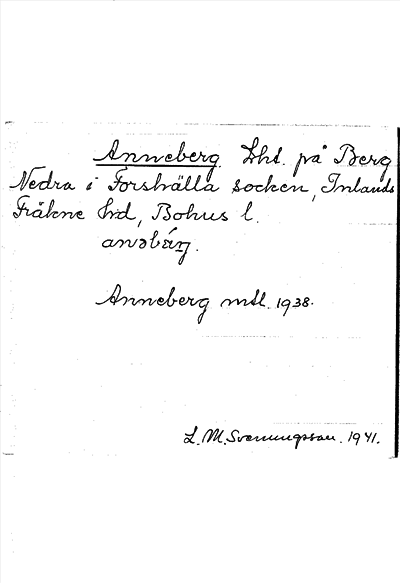 Anneberg. Lht. på Berg
Nedra i Forshälla socken, Inlands
Fräkne hd, Bohus l.
anəbærj.
Anneberg mtl. 1938.
L. M. Svenungsson. 1941.